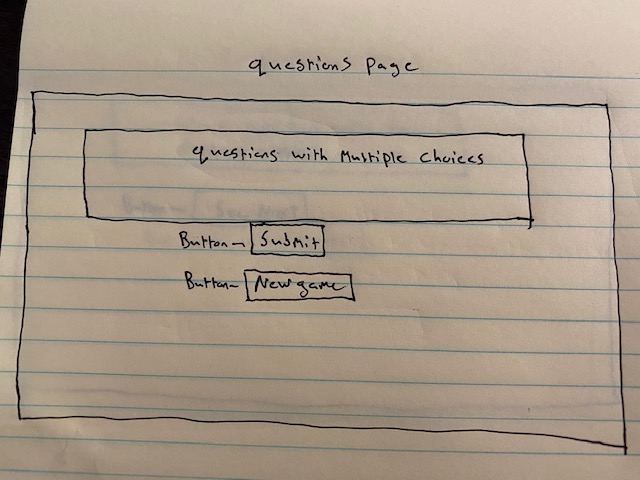 questions page
questions with Multiple Choices
Button- Submit
Button- New game